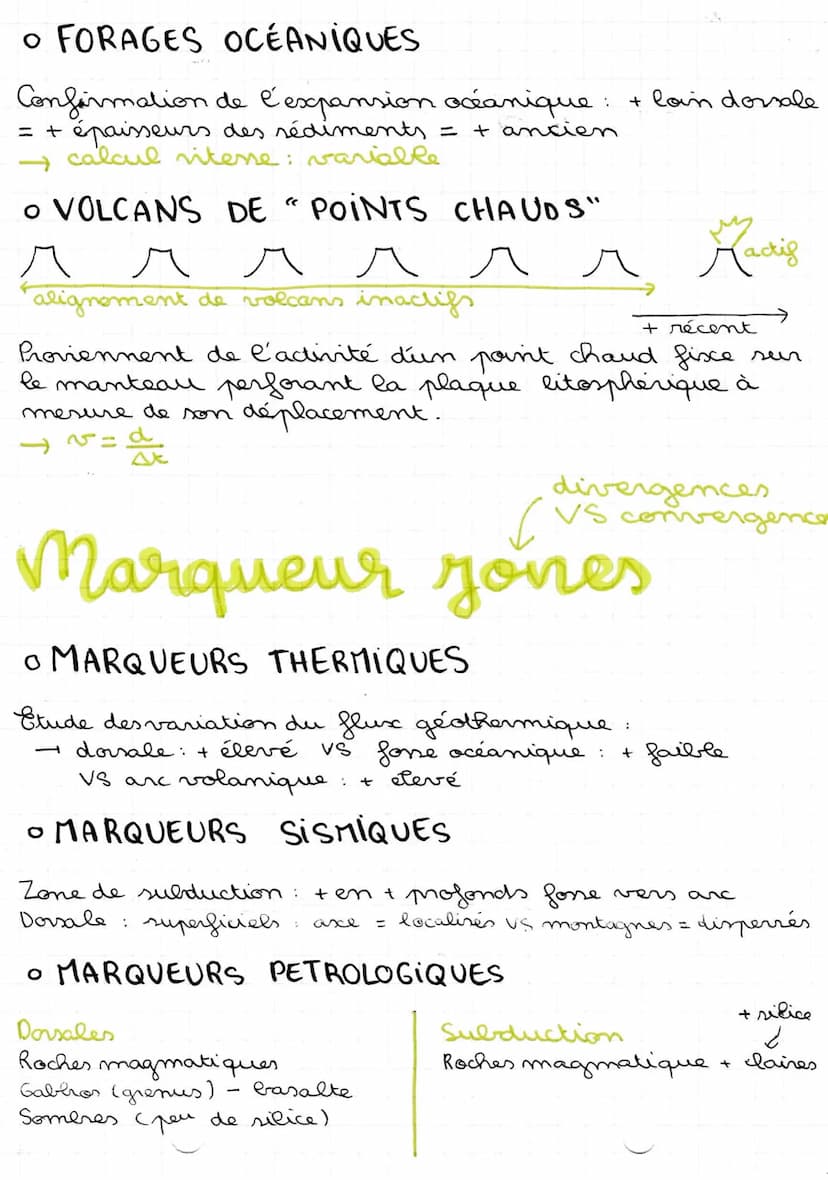 o FORAGES OCÉANIQUES
Confirmation de l'expansion océanique : + loin dorsale
= + épaisseurs des sédiments = + ancien
→ calcul vitesse : variable
o VOLCANS DE "POINTS CHAUDS"
actif
alignement de volcans inactifs
+ récent
Proviennent de l'activité d'un point chaud fixe sur
le manteau perforant la plaque litosphérique à
mesure de son déplacement.
→ v = d/Δt
divergences
VS convergence
Marqueur zones
o MARQUEURS THERMIQUES
Etude des variation du flux géothermique :
→ dorsale : + élevé VS fosse océanique : + faible
VS arc volanique : + élevé
o MARQUEURS SISMIQUES
Zone de subduction : + en + profonds fosse vers arc
Dorsale : superficiels : axe = localisés VS montagnes = dispersés
o MARQUEURS PETROLOGIQUES
+ silice
Dorsales
Roches magmatiques
Gabbros (grenus) - basalte
Sombres (peu de silice)
Subduction
Roches magmatique + claires